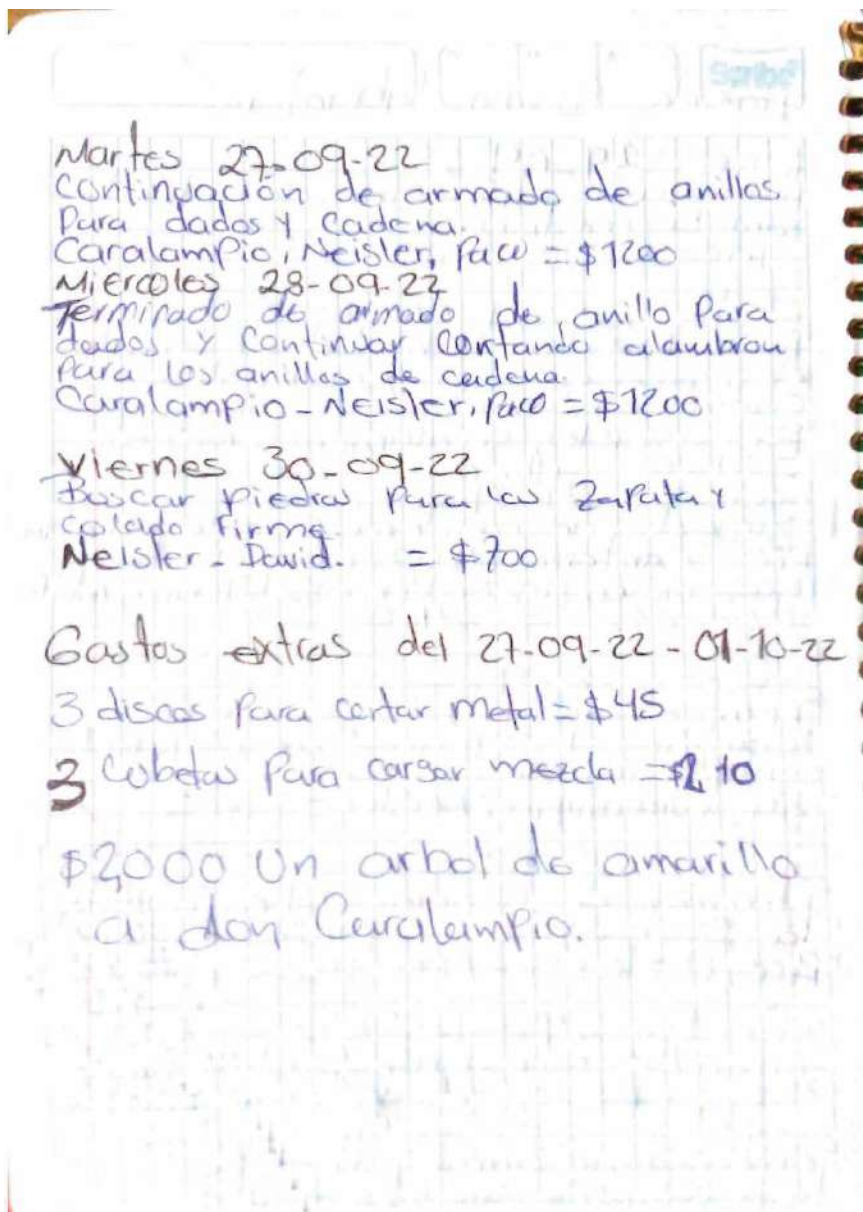 Scribe
Martes 27-09-22
Continuación de armado de anillos
Para dados y Cadena.
Caralampio, Neisler, Paco = $1200
Miercoles 28-09-22
Terminado de armado de anillo Para
dados y Continuar Contando alambron
Para los anillos de cadena.
Caralampio - Neisler, Paco = $1200
Viernes 30-09-22
Buscar piedras para las Zapata y
Colado Firme
Neisler - David. = $700
Gastos extras del 27-09-22 - 01-10-22
3 discos Para cortar metal = $45
3 Cubetas Para cargar mezcla = $210
$2,000 Un arbol de amarillo
a don Caralampio.